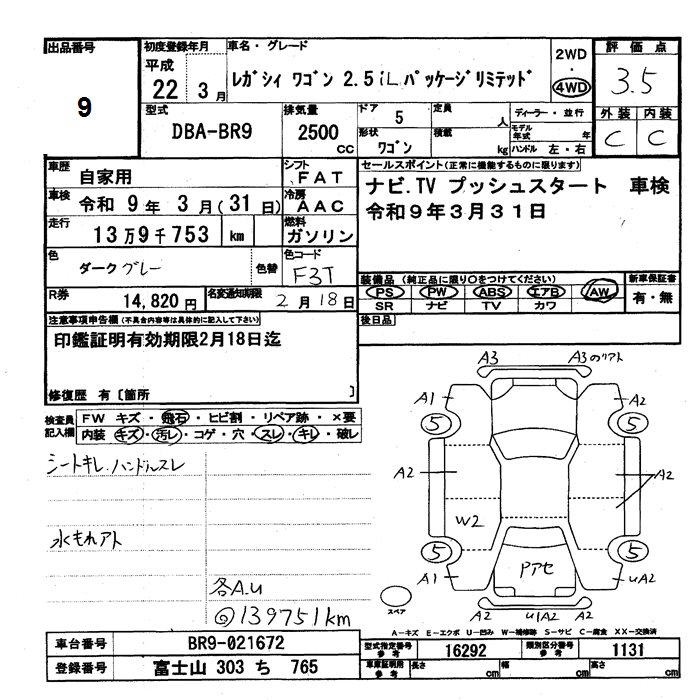 出品番号 9
初度登録年月 平成 22 3月
車名・グレード レガシィ ワゴン 2.5iLパッケージリミテッド
2WD・4WD
評価点 3.5
外装 C 内装 C
型式 DBA-BR9
排気量 2500 CC
ドア 5
形状 ワゴン
定員 人
積載 kg
ディーラー・並行
モデル年式 年
ハンドル 左・右
車歴 自家用
シフト FAT
車検 令和 9年 3月(31日)
冷房 AAC
走行 13万9千753 km
燃料 ガソリン
セールスポイント(正常に機能するものに限ります)
ナビ.TV プッシュスタート 車検
令和9年3月31日
色 ダークグレー 色替
色コード F3T
R券 14,820円
名変通知期限 2月18日
装備品 (純正品に限り○をつけてください)
PS PW ABS エアB AW
SR ナビ TV カワ
新車保証書 有・無
後日品
注意事項申告欄(不具合内容等は具体的に記入して下さい)
印鑑証明有効期限2月18日迄
修復歴 有〔箇所 〕
検査員記入欄
FW キズ・飛石・ヒビ割・リペア跡・×要
内装 キズ・汚レ・コゲ・穴・スレ・キレ・破レ
シートキレ.ハンドルスレ
水もれアト
各A.u
◎139751km
A3 A3のリアト
A1 A2
5 5
A2 A2
W2
5 5
A1 Pアセ uA2
スペア
A2 u1A2 A2
A-キズ E-エクボ U-凹み W-補修跡 S-サビ C-腐食 XX-交換済
車台番号 BR9-021672
登録番号 富士山 303 ち 765
型式指定番号 参考 16292
類別区分番号 参考 1131
車庫証明用 参考 長さ cm 幅 cm 高さ cm